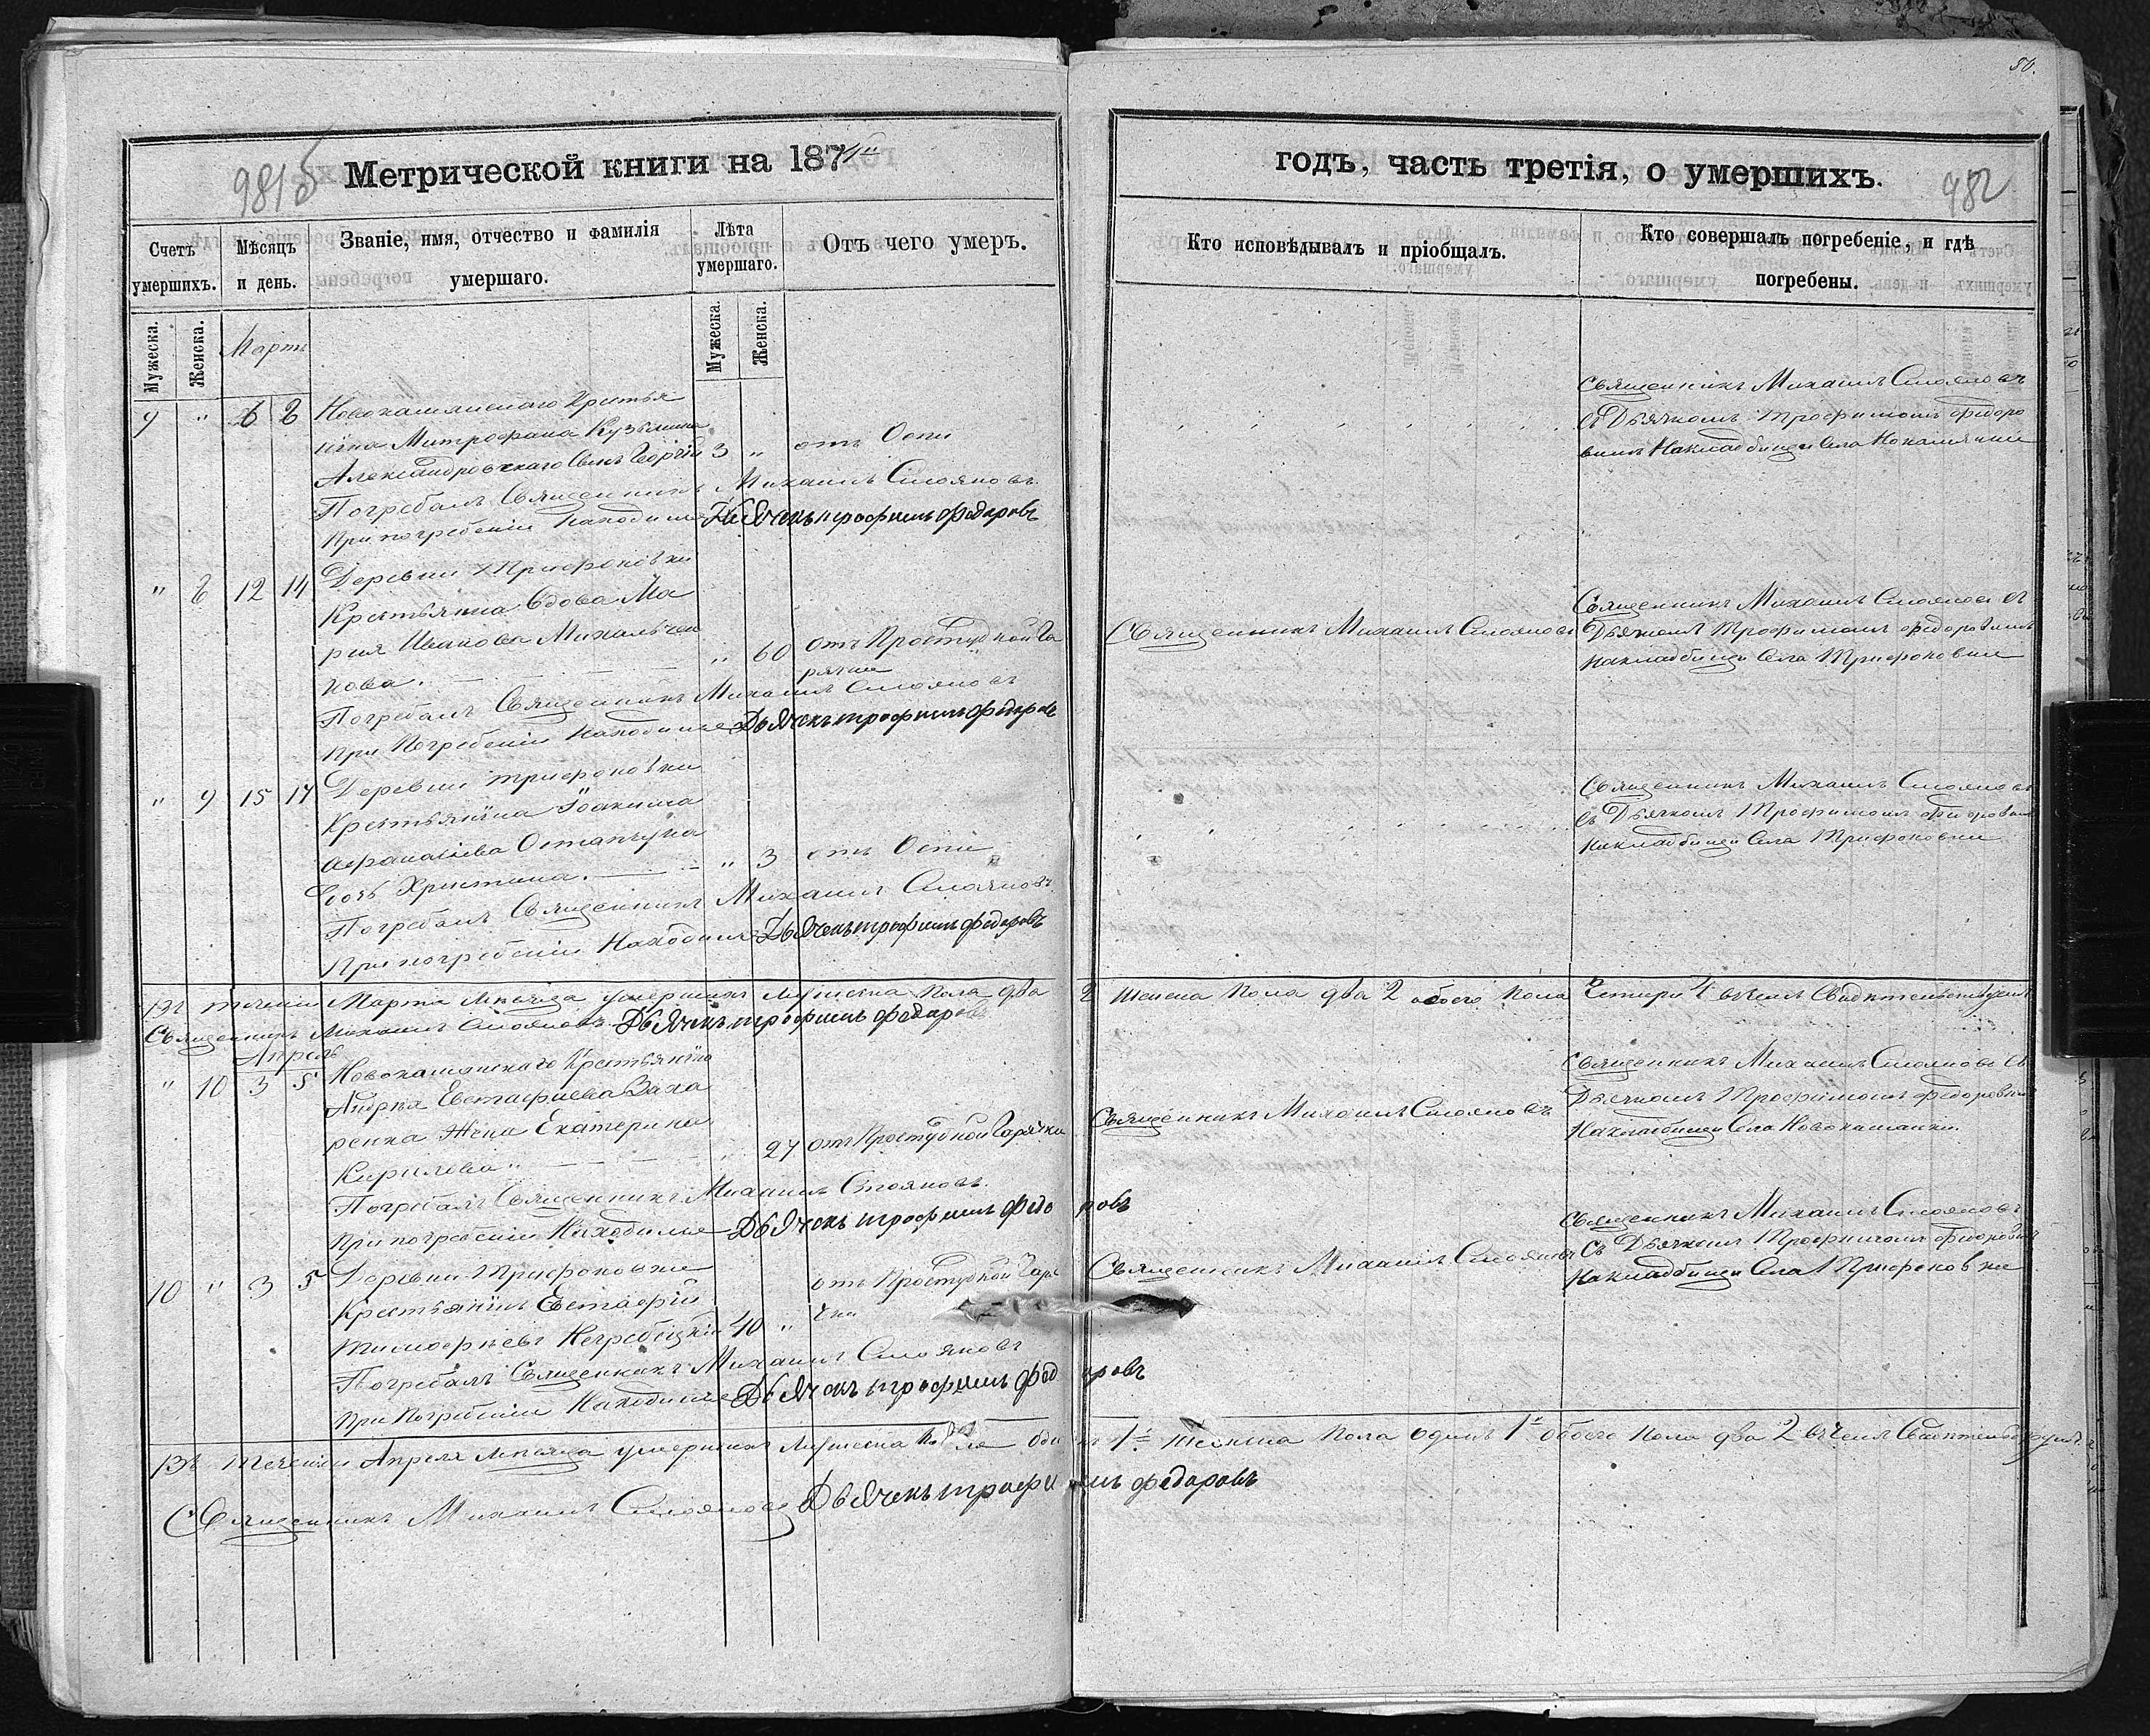 50.
Метрической книги на 1871й
годъ, часть третія, о умершихъ.
981б
982
Счетъ умершихъ.
Мѣсяцъ и день.
Званіе, имя, отчество и фамилія умершаго.
Лѣта умершаго.
Отъ чего умеръ.
Кто исповѣдывалъ и пріобщалъ.
Кто совершалъ погребеніе, и гдѣ погребены.
Мужеска.
Женска.
Мартъ
Мужеска
Женска.
9 " 6 8 Новокашянскаго Крестья
нина Митрофана Кузьмина
Александровскаго Сынъ Георгій 3 " отъ Оспи
Погребалъ Священникъ Михаилъ Стояновъ.
При погребеніи Находился Дьячекъ трофимъ федоровъ
Священникъ Михаилъ Стояновъ
съ Дьячкомъ Трофимомъ федоро
вимъ На кладбищи Села
" 8 12 14 Деревни Трифоновки
Крестьянка Вдова Ма
рия Иванова Михальчен
кова. " 60 отъ Простудной Га
рячки
Погребалъ Священникъ Михаилъ Стояновъ
При Погребеніи Находился Дьячекъ трофимъ федоровъ
Священникъ Михаилъ Стояновъ
Священникъ Михаилъ Стояновъ съ
Дьячкомъ Трофимомъ федоровимъ
на кладбищи Села Трифоновки
" 9 15 17 Деревни трифоновки
Крестьянина Іоакима
афанасіева Остапчука
дочь Христина. " 3 отъ Оспи
Погребалъ Священникъ Михаилъ Стояновъ
При погребеніи Находился Дьячекъ трофимъ федоровъ
Священникъ Михаилъ Стояновъ
съ Дьячкомъ Трофимомъ федоровим
На кладбищи Села Трифоновки
Въ теченіи Марта Мѣсяца умершихъ Мужеска Пола два 2 Женска Пола два 2 обоего Пола Четири 4 въ чемъ Свидѣтельствуемъ
Священникъ Михаилъ Стояновъ Дьячекъ трофимъ федоровъ
Апрель
" 10 3 5 Новокашянскаго Крестьянина
Андрѣя Евстафиева Заха
ренка Жена Екатерина
Кирилова " 27 отъ Простудной Гарячки
Погребалъ Священникъ Михаилъ Стояновъ.
При погребеніи Находился Дьячекъ трофимъ федоровъ
Священникъ Михаилъ Стояновъ
Священникъ Михаилъ Стояновъ съ
Дьячкомъ Трофимомъ федоровим
На кладбищи Села Новокашанки.
10 " 3 5 Деревни Трифоновки
Крестьянинъ Евстафій
тимофѣевъ Негребицкій 40 " отъ Простудной Гаря
чки
Погребалъ Священникъ Михаилъ Стояновъ
При Погребеніи Находился Дьячекъ трофимъ федоровъ
Священникъ Михаилъ Стояновъ
Священникъ Михаилъ Стояновъ
Съ Дьячкомъ Трофимомъ федоровим
На кладбищи Села Трифоновки
Въ теченіи Апреля Мѣсяца умершихъ Мужеска Пола одинъ 1 Женска Пола одинъ 1 обоего Пола два 2 въ чемъ Свидѣтельствуемъ
Священникъ Михаилъ Стояновъ Дьячекъ трофимъ федоровъ